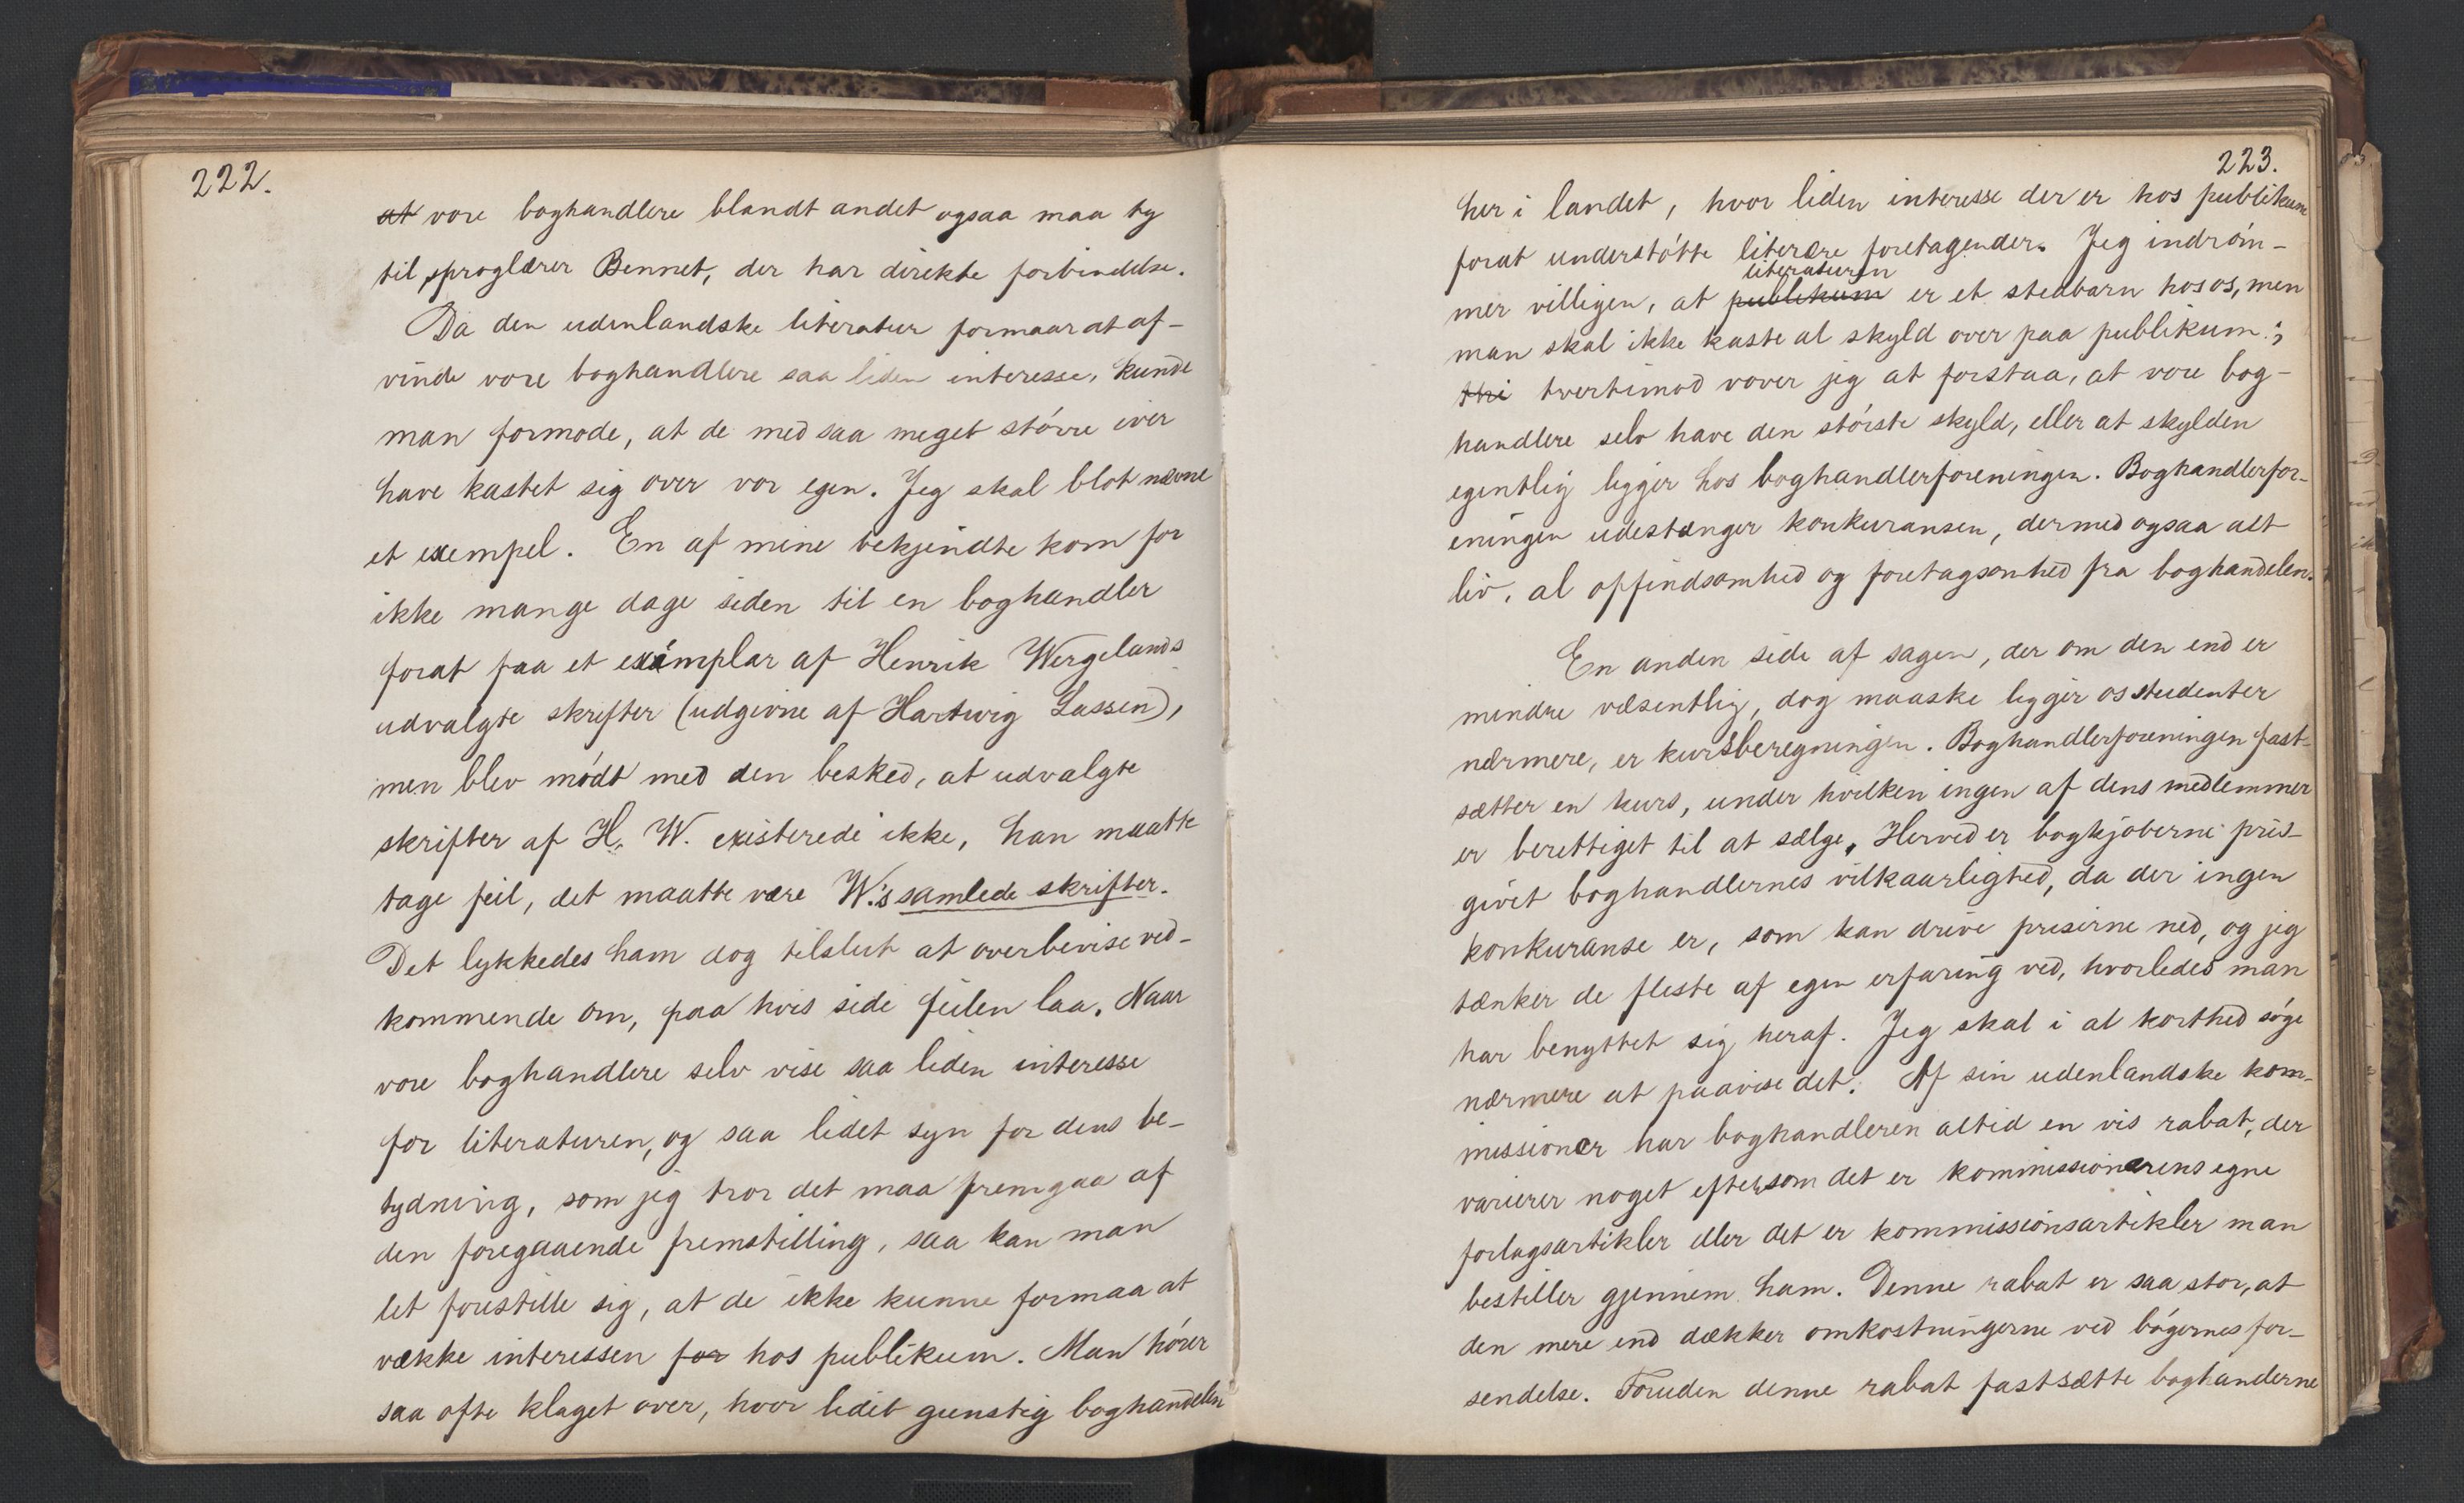 222.
at vore boghandlere blandt andet ogsaa maa ty
til sproglærer Bennet, der har direkte forbindelse.
Da den udenlandske literatur formaar at af-
vinde vore boghandlere saa liden interesse, kunde
man formode, at de med saa meget større iver
have kastet sig over vor egen. Jeg skal blot nævne
et exempel. En af mine bekjendte kom for
ikke mange dage siden til en boghandler
forat faa et exemplar af Henrik Wergelands
udvalgte skrifter (udgivne af Hartvig Lassen),
men blev mødt med den besked, at udvalgte
skrifter af H. W. existerede ikke, han maatte
tage feil, det maatte være W.'s samlede skrifter.
Det lykkedes ham dog tilslut at overbevise ved-
kommende om, paa hvis side feilen laa. Naar
vore boghandlere selv vise saa liden interesse
for literaturen, og saa lidet syn for dens be-
tydning, som jeg tror det maa fremgaa af
den foregaaende fremstilling, saa kan man
let forestille sig, at de ikke kunne formaa at
vække interessen for hos publikum. Man hører
saa ofte klaget over, hvor lidet gunstig boghandelen
223.
her i landet, hvor liden interesse der er hos publikum
forat understøtte literære foretagender. Jeg indrøm-
literaturen
mer villigen, at publikum er et stedbarn hos os, men
man skal ikke kaste al skyld over paa publikum;
thi tvertimod vover jeg at forstaa, at vore bog-
handlere selv have den største skyld, eller at skylden
egentlig ligger hos boghandlerforeningen. Boghandlerfor-
eningen udestænger konkuransen, dermed ogsaa alt
liv, al opfindsomhed og foretagsomhed fra boghandelen.
En anden side af sagen, der om den end er
mindre væsentlig, dog maaske ligger os studenter
nærmere, er kursberegningen. Boghandlerforeningen fast-
sætter en kurs, under hvilken ingen af dens medlemmer
er berettiget til at sælge. Herved er bogkjøberne pris-
givet boghandlernes vilkaarlighed, da der ingen
konkuranse er, som kan drive priserne ned, og jeg
tænker de fleste af egen erfaring ved, hvorledes man
har benyttet sig heraf. Jeg skal i al korthed søge
nærmere at paavise det. Af sin udenlandske kom-
missionær har boghandleren altid en vis rabat, der
varierer noget eftersom det er kommissionærens egne
forlagsartikler eller det er kommissionsartikler man
bestiller gjennem ham. Denne rabat er saa stor, at
den mere end dækker omkostningerne ved bøgernes for-
sendelse. Foruden denne rabat fastsætte boghanderne